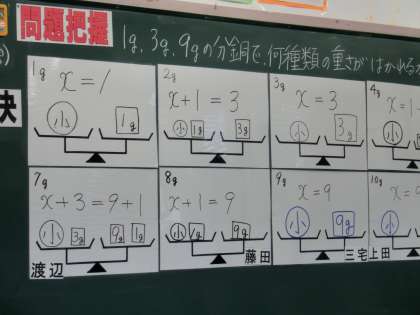 問題把握
1g、3g、9gの分銅で、何種類の重さがはかれるか
決
1g
x = 1
小 1g
2g
x+1 = 3
小 1g 3g
3g
x = 3
小 3g
4g
小
7g
x+3 = 9+1
小 3g 9g 1g
渡辺
8g
x+1 = 9
小 1g 9g
藤田
9g
x = 9
小 9g
三宅
10g
小
上田